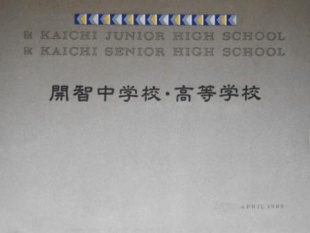 KAICHI JUNIOR HIGH SCHOOL
KAICHI SENIOR HIGH SCHOOL
開智中学校・高等学校